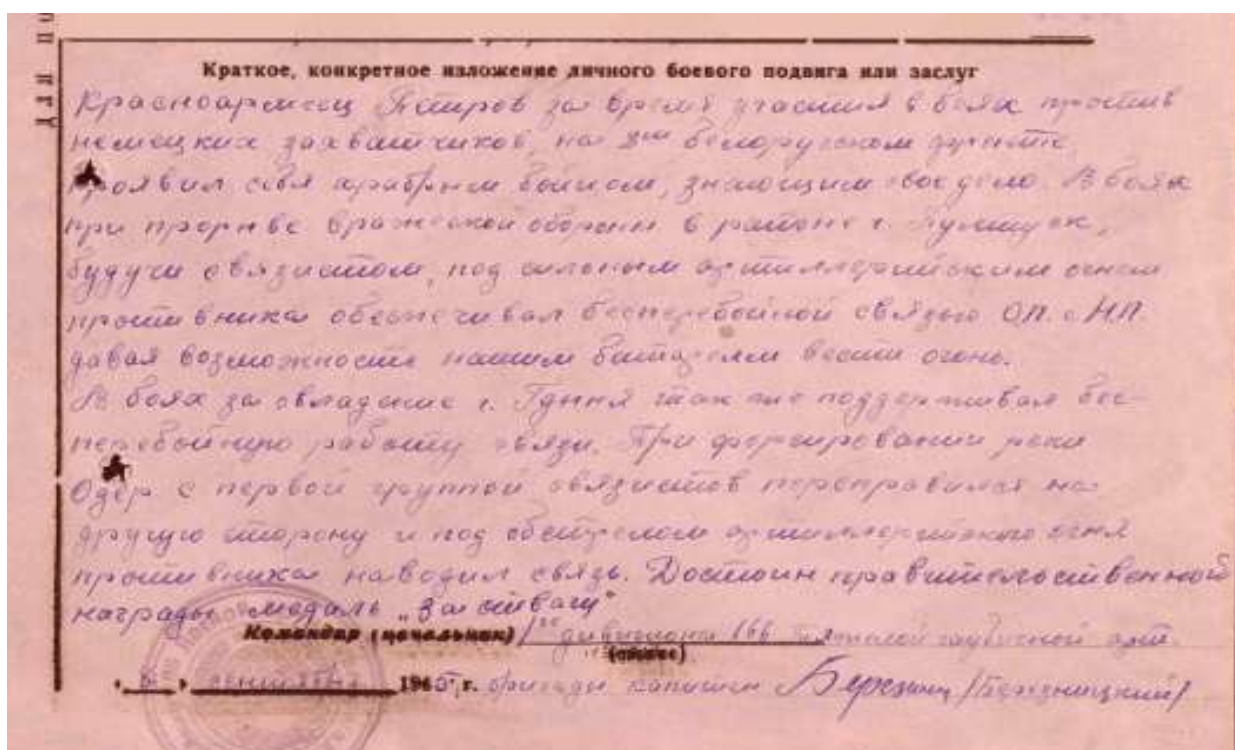 Краткое, конкретное изложение личного боевого подвига или заслуг
Красноармеец за время участия в боях против
немецких захватчиков, на 2ом белорусском фронте,
проявил себя храбрым бойцом, знающим свое дело. В боях
при прорыве вражеской обороны в районе г. Пултуск,
будучи связистом, под сильным артиллерийским огнем
противника обеспечивал бесперебойной связью ОП. с НП.
давая возможность нашим батареям вести огонь.
В боях за овладение г. Гдыня так же поддерживал бес-
перебойную работу связи. При форсировании реки
Одер с первой группой связистов переправился на
другую сторону и под обстрелом артиллерийского огня
противника наводил связь. Достоин правительственной
награды медаль „За отвагу"
Командир (начальник) 1го дивизиона 166 тяжелой гаубичной арт.
1945 г. бригады капитан /Березницкий/